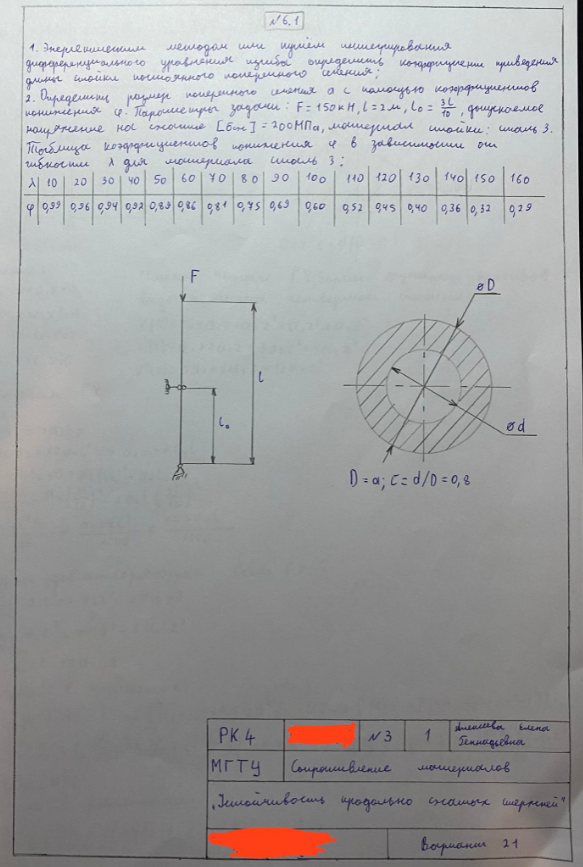 №6.1
1. Энергетическим методом или путём интегрирования
дифференциального уравнения изгиба определить коэффициент приведения
длины стойки постоянного поперечного сечения;
2. Определить размер поперечного сечения a с помощью коэффициентов
понижения φ. Параметры задачи: F=150кН, l=2м, l₀ = 3l/10, допускаемое
напряжение на сжатие [σсж]=200МПа, материал стойки: сталь 3.
Таблица коэффициентов понижения φ в зависимости от
гибкости λ для материала сталь 3:
λ 10 20 30 40 50 60 70 80 90 100 110 120 130 140 150 160
φ 0,99 0,96 0,94 0,92 0,89 0,86 0,81 0,75 0,69 0,60 0,52 0,45 0,40 0,36 0,32 0,29
F
l
l₀
⌀D
⌀d
D=a; c=d/D=0,8
РК4 №3 1 Алексеева Елена
Геннадьевна
МГТУ Сопротивление материалов
"Устойчивость продольно сжатых стержней"
Вариант 21